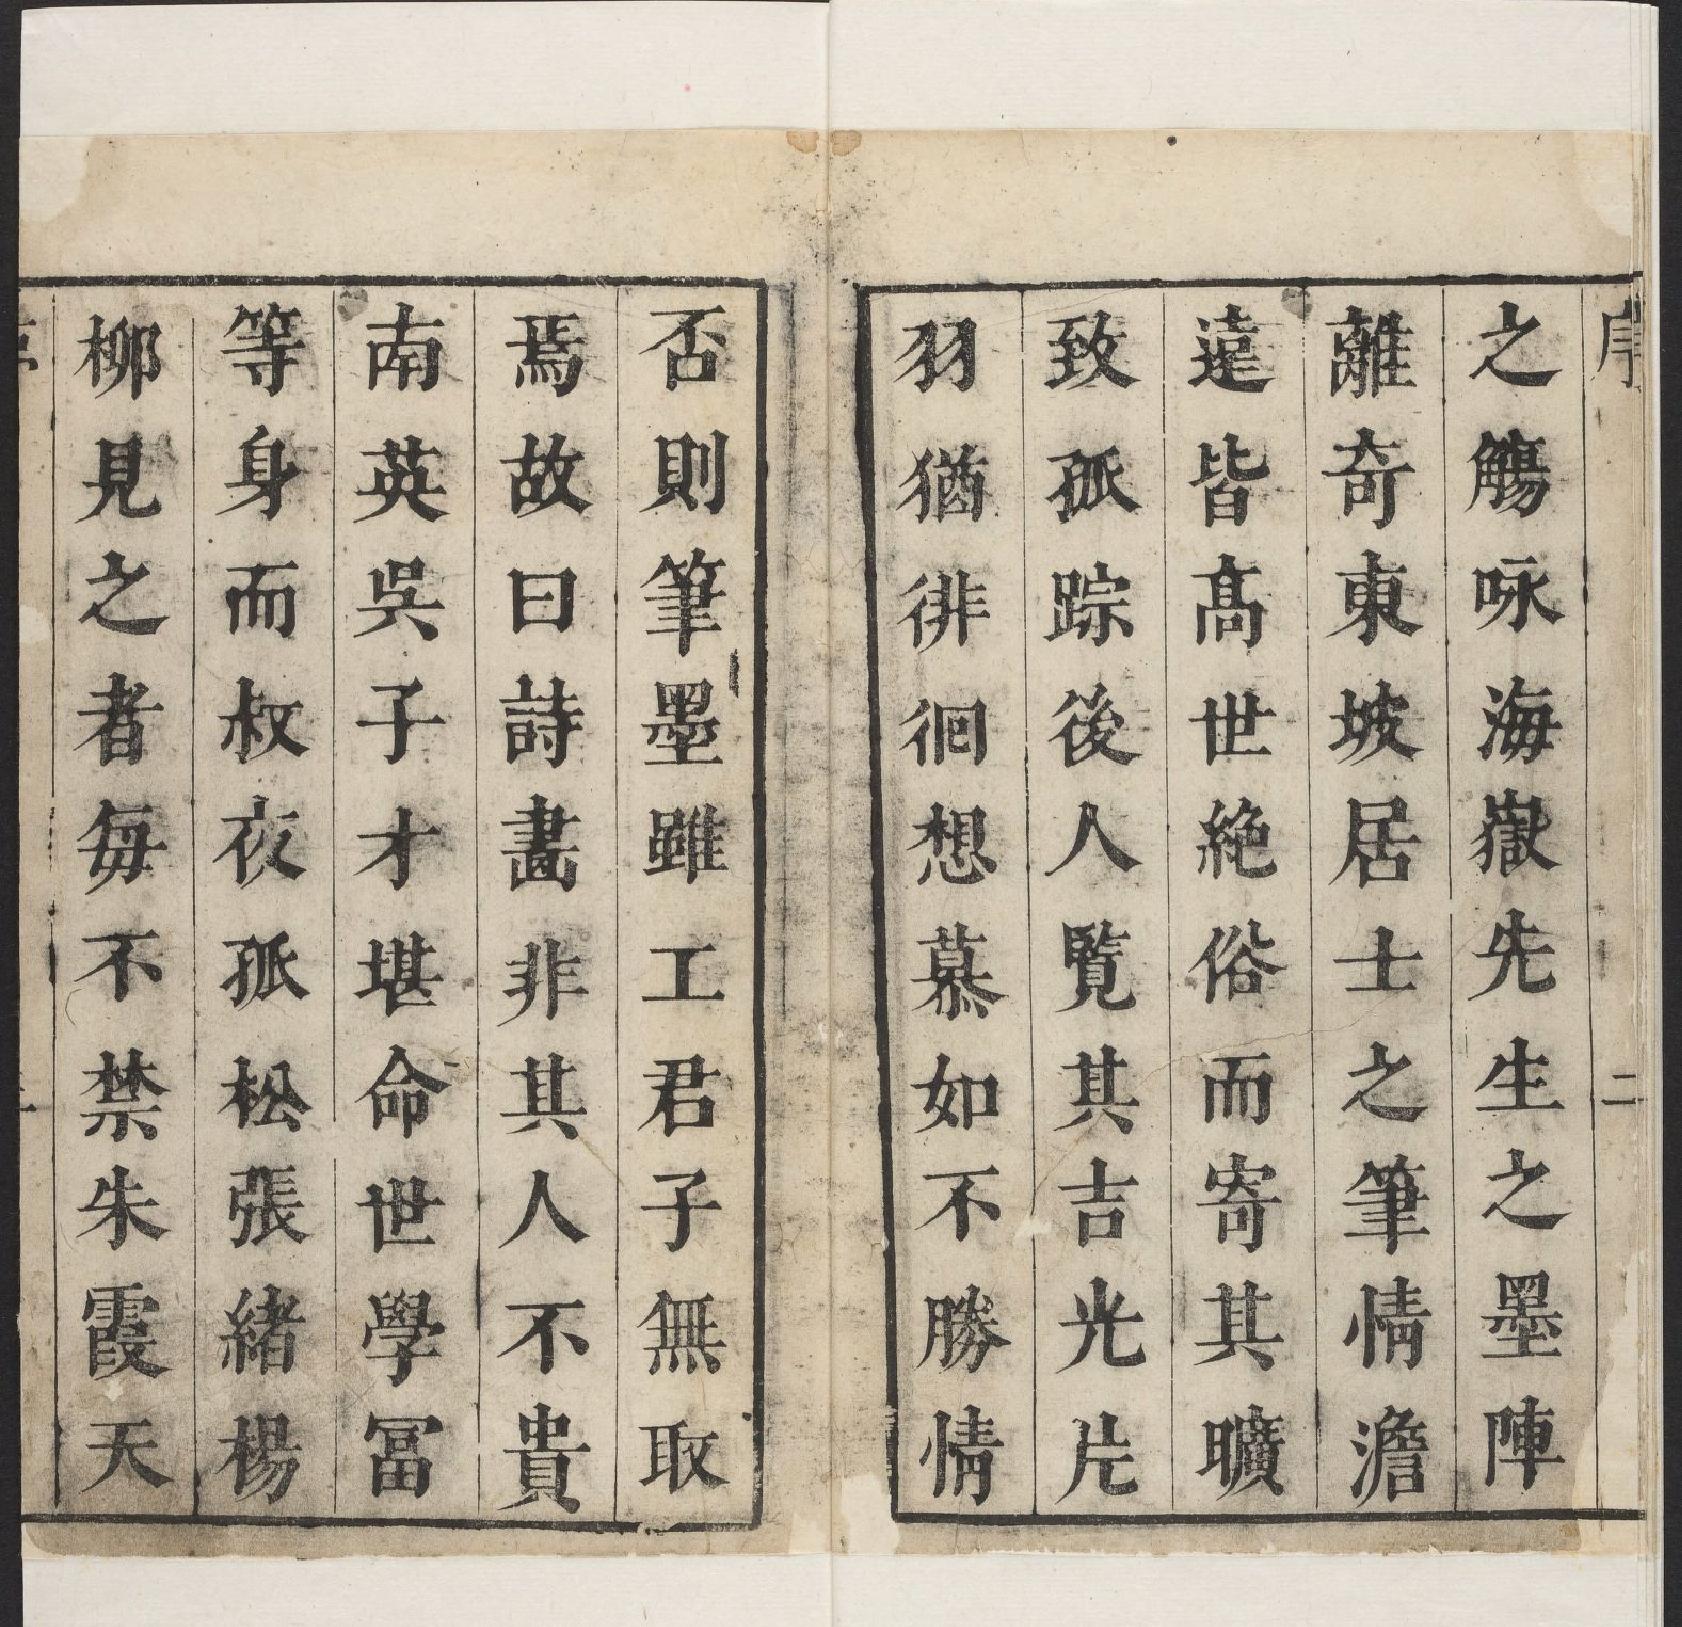 序 二
之觴咏海嶽先生之墨陣
離奇東坡居士之筆情澹
遠皆髙世絶俗而寄其曠
致孤踪後人覧其吉光片
羽猶徘徊想慕如不勝情
否則筆墨雖工君子無取
焉故曰詩畫非其人不貴
南英吳子才堪命世學冨
等身而叔夜孤松張緒楊
柳見之者每不禁朱霞天